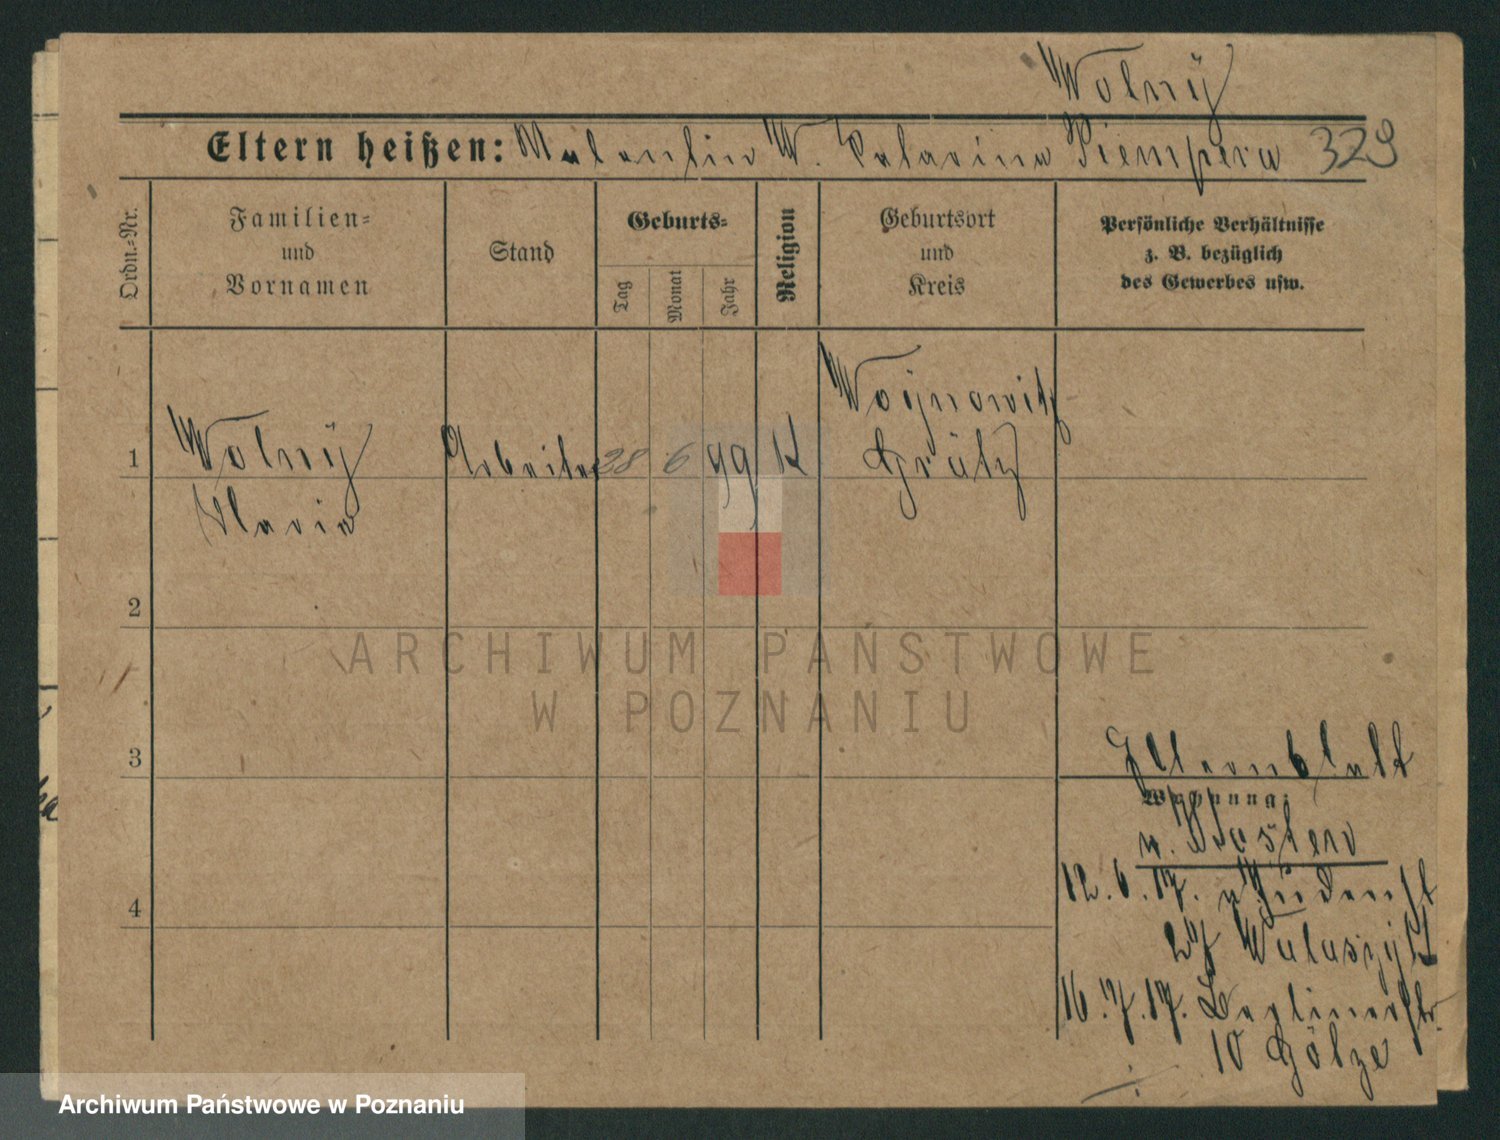 Wolnÿ
Eltern heißen: Valentin W. Katarina Piempera 329
Ordn.-Nr.
Familien-
und
Vornamen
Stand
Geburts-
Tag
Monat
Jahr
Religion
Geburtsort
und
Kreis
Persönliche Verhältnisse
z. B. bezüglich
des Gewerbes usw.
1
Wolnÿ
Maria
Arbeiter
28
6
99
K
Woynowitz
Grätz
2
3
4
Elternblatt
Wohnung:
n. Kosten
12. 6. 17.
27
16. 7. 17. Berlinerstr.
10 Gölze
ARCHIWUM PAŃSTWOWE
W POZNANIU
Archiwum Państwowe w Poznaniu